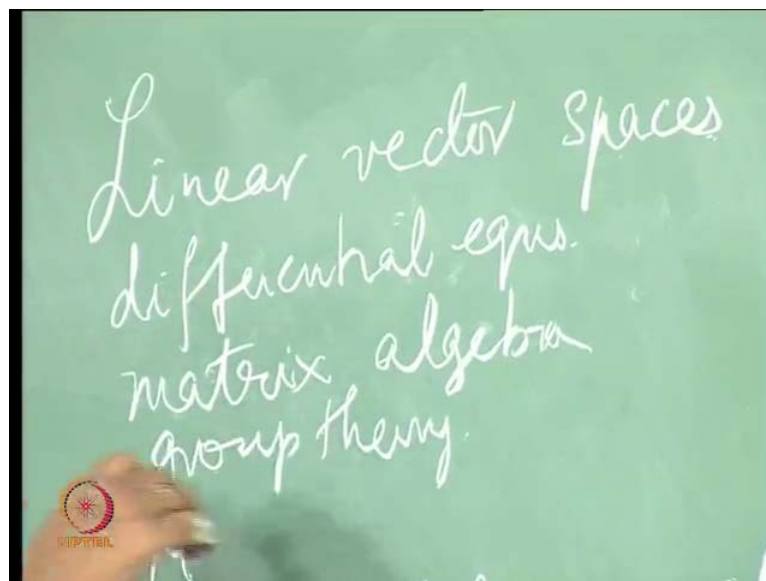 Linear vector spaces
differential equs.
matrix algebra
group theory.
NPTEL